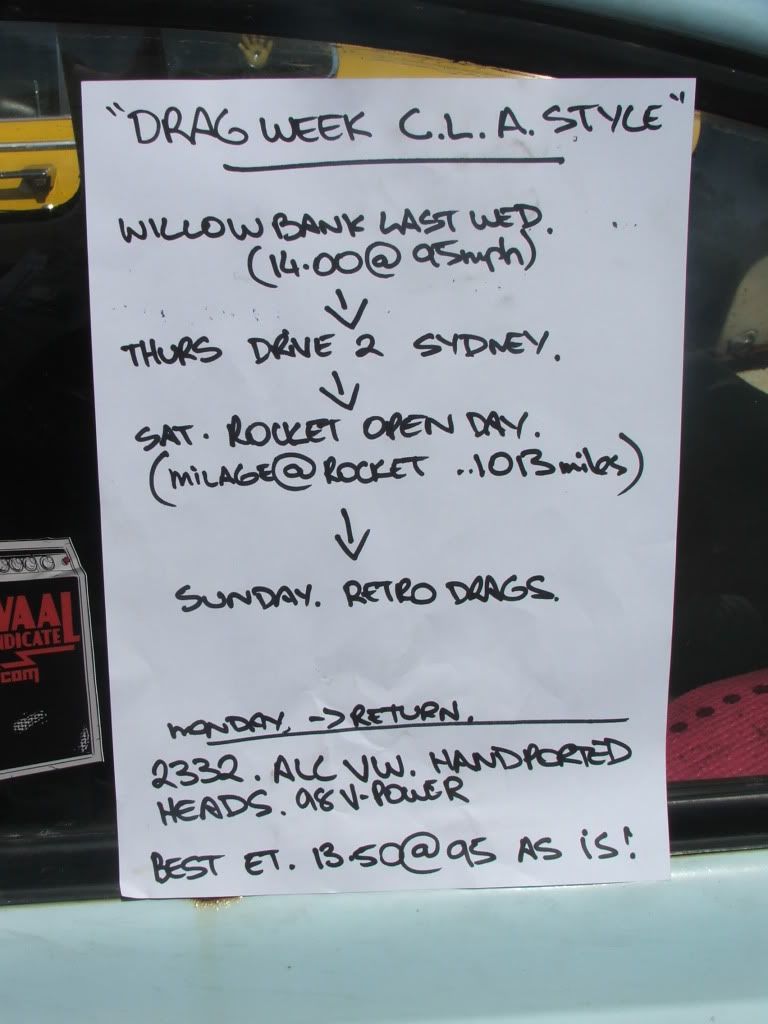 "DRAG WEEK C.L.A. STYLE"
WILLOWBANK LAST WED.
(14.00@ 95mph)
↓
THURS DRIVE 2 SYDNEY.
↓
SAT. ROCKET OPEN DAY.
(MILAGE@ROCKET ..1013 miles)
↓
SUNDAY. RETRO DRAGS.
MONDAY. -> RETURN.
2332. ALL VW. HANDPORTED
HEADS. 98 V-POWER
BEST ET. 13.50@95 AS IS!
VAAL
NDICATE
.com